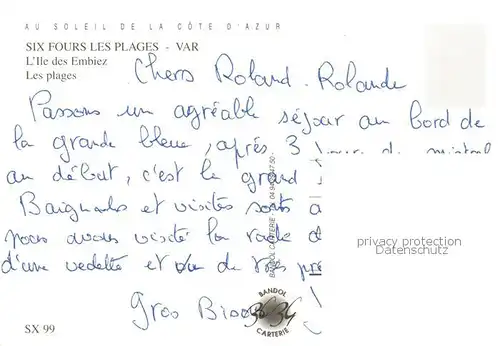 AU SOLEIL DE LA CÔTE D'AZUR
SIX FOURS LES PLAGES - VAR
L'Ile des Embiez
Les plages
Chers Roland. Rolande
Passons un agréable séjour au bord de
la grande bleue, après 3 jours de mistral
au début, c'est le grand
Baignades et visites sont a
nous avons visité la rade d
d'une vedette et vu de très pr
Gros Bisous
BANDOL CARTERIE
privacy protection
Datenschutz
BANDOL
CARTERIE
SX 99